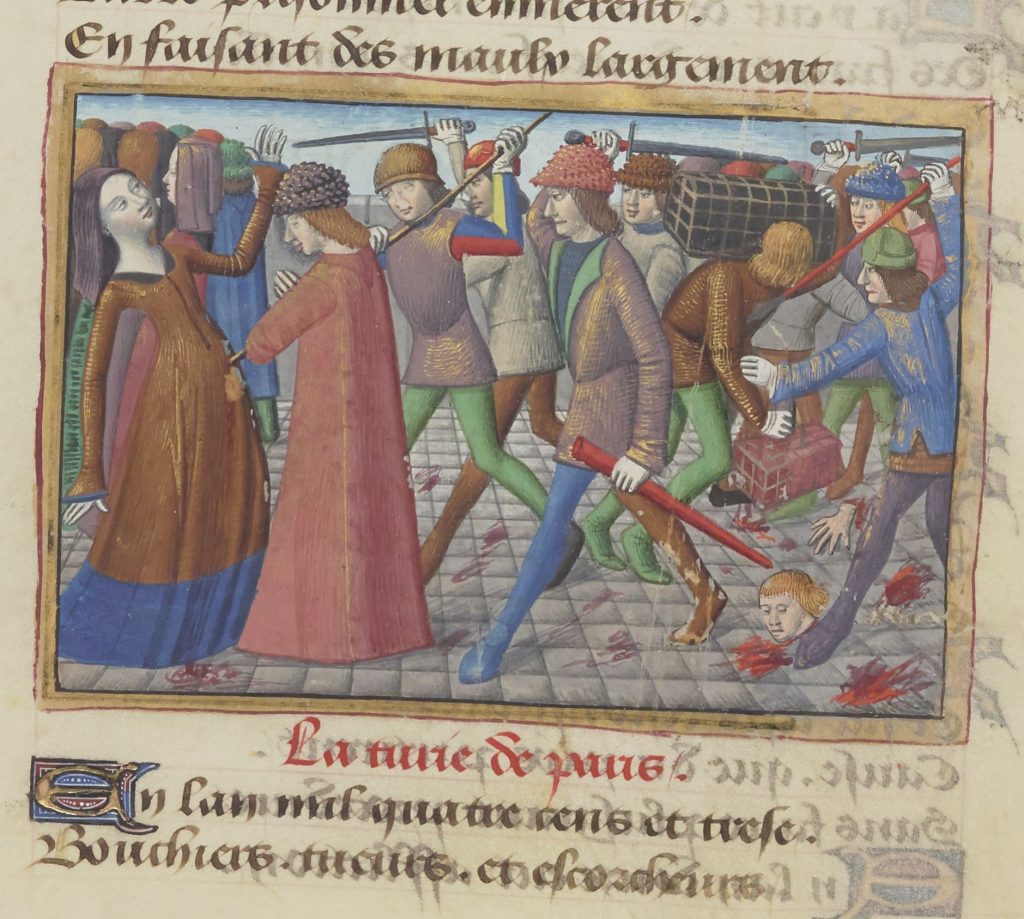 prisonnier emmerent.
En faisant des maulx largement.
La turie de paris.
En lan mil quatre cens et trese.
Bouchiers. tueurs. et escorcheurs